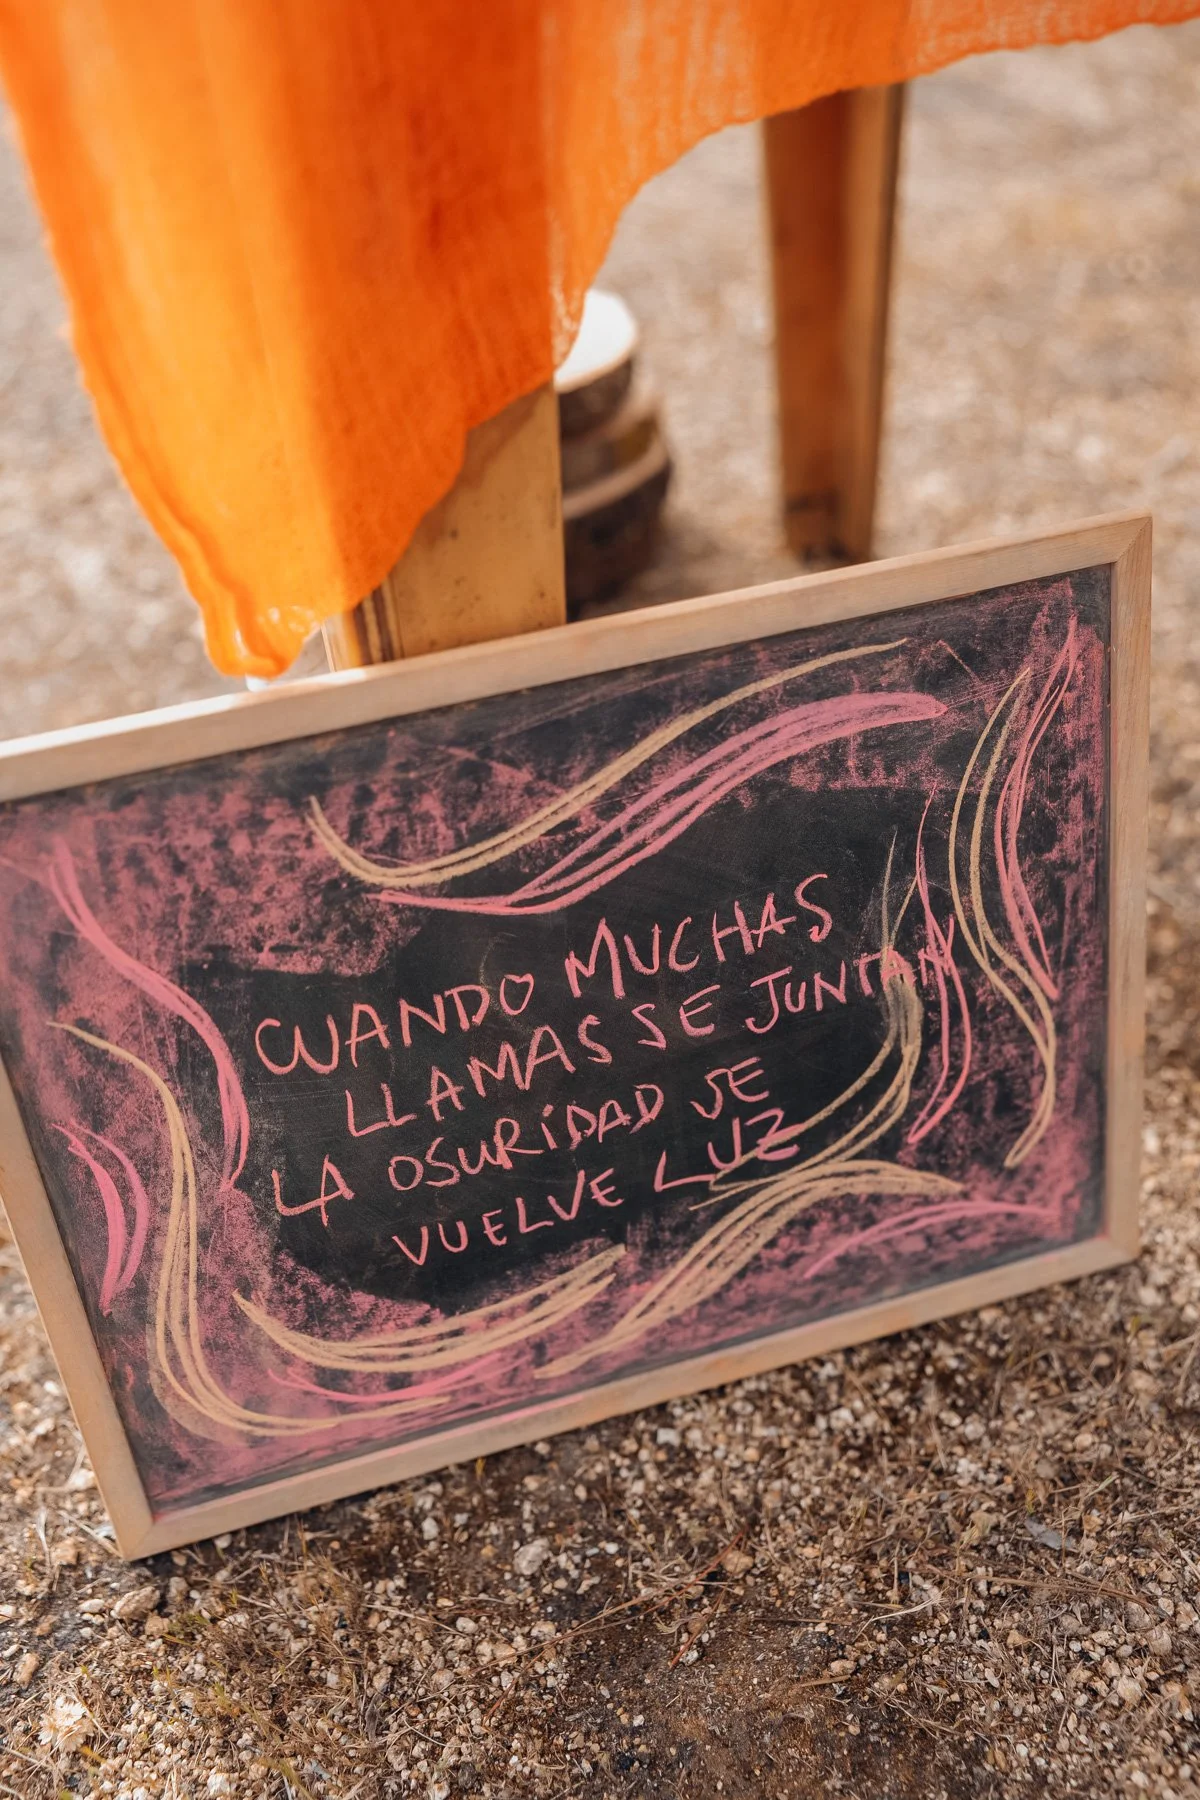 CUANDO MUCHAS
LLAMAS SE JUNTAN
LA OSURIDAD SE
VUELVE LUZ